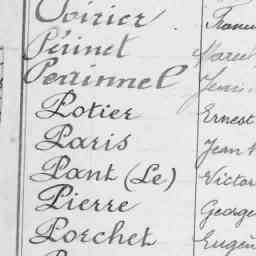 Voirier Franc
Périnet Marcel
Perrinnel Jean
Potier Ernest
Paris Jean
Pant (Le) Victor
Pierre George
Porchet Eugèn